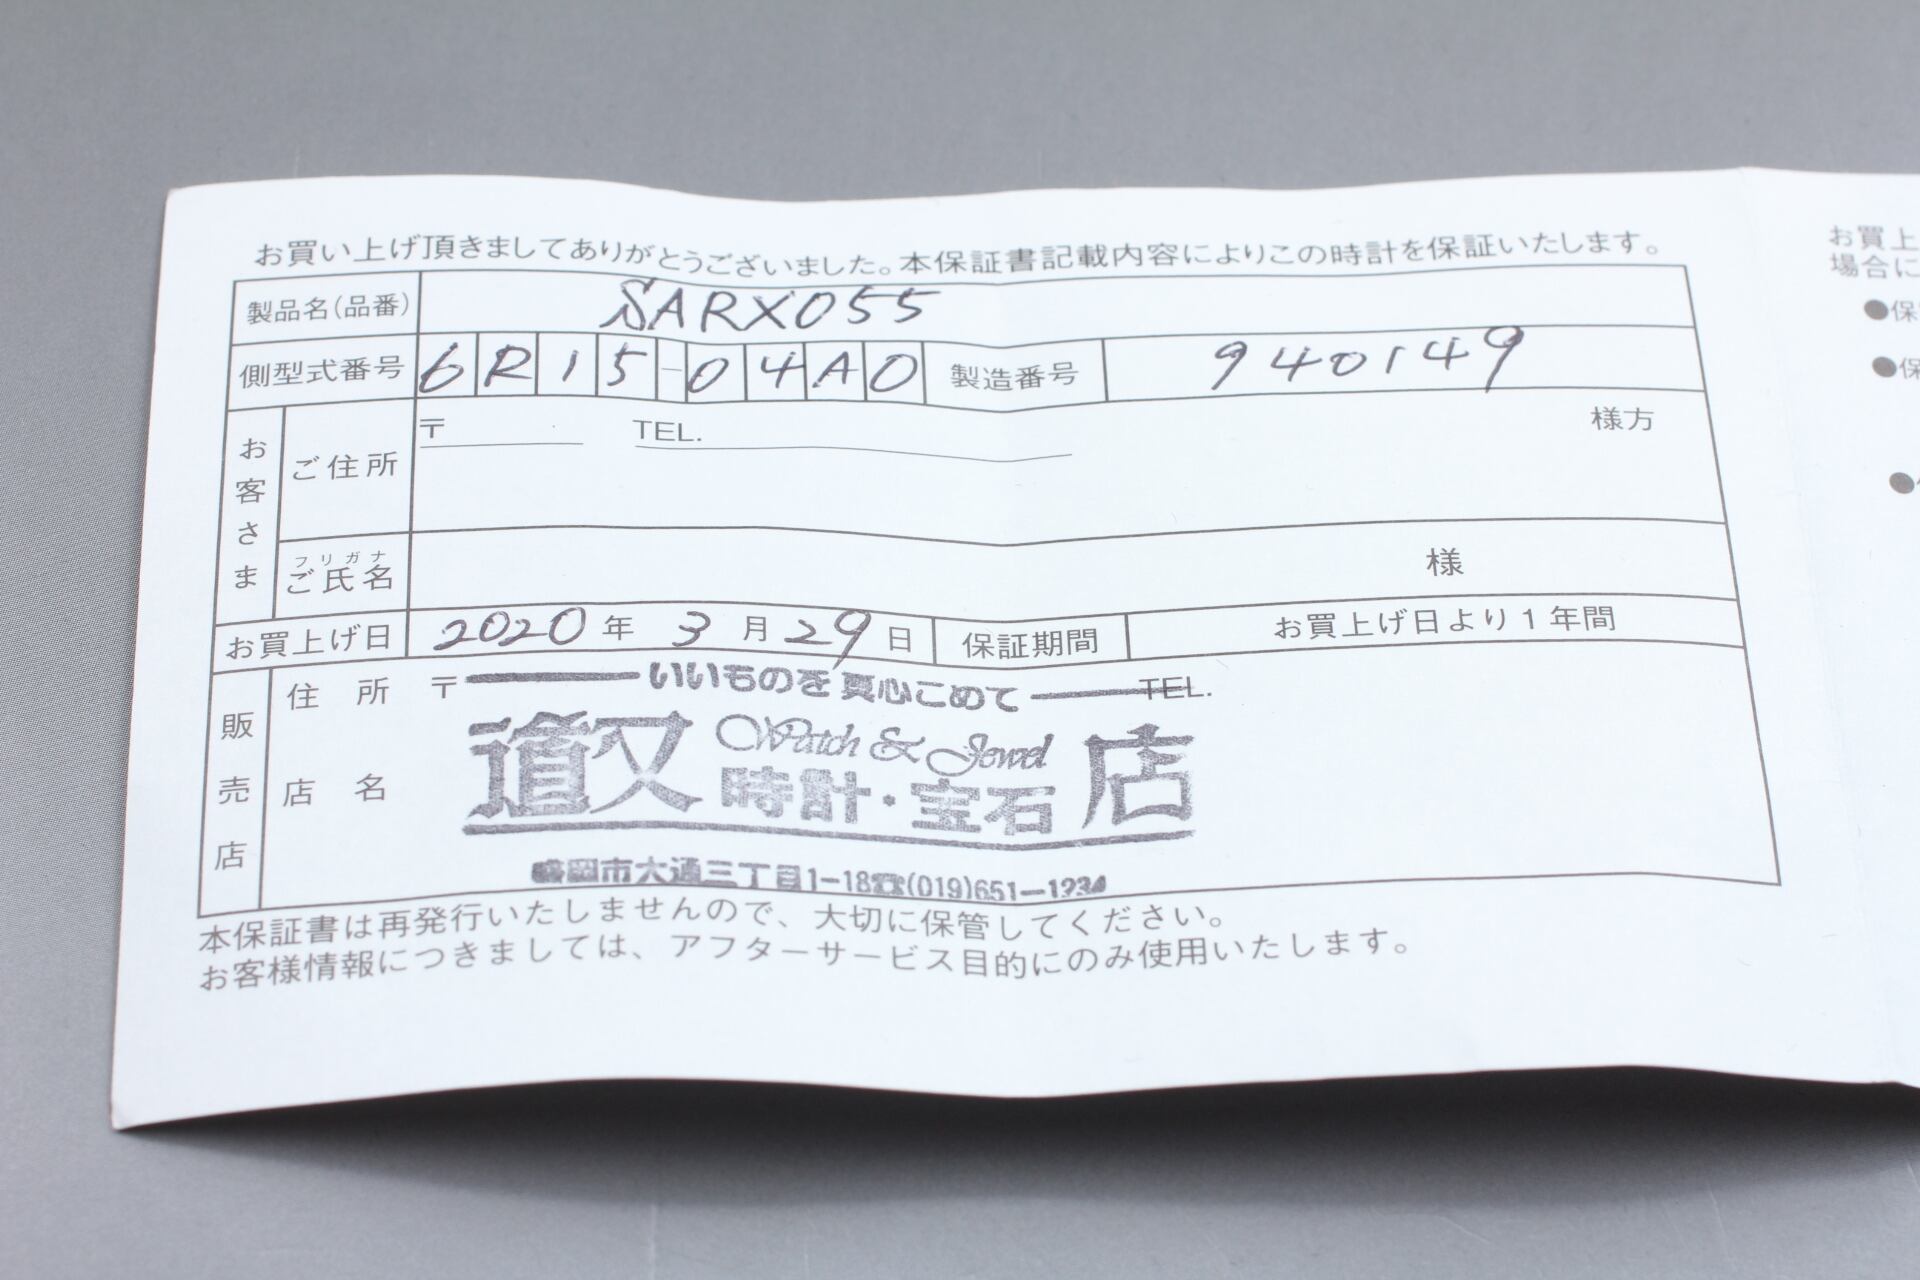 お買い上げ頂きましてありがとうございました。本保証書記載内容によりこの時計を保証いたします。
製品名(品番) SARX055
側型式番号 6R15-04A0 製造番号 940149
お客さま
ご住所 〒 TEL. 様方
フリガナ
ご氏名 様
お買上げ日 2020年 3月29日 保証期間 お買上げ日より1年間
販売店
住所 〒 いいものを真心こめて TEL.
店名 道又 Watch & Jewel 時計・宝石 店
盛岡市大通三丁目1-18☎(019)651-1234
本保証書は再発行いたしませんので、大切に保管してください。
お客様情報につきましては、アフターサービス目的にのみ使用いたします。
お買上
場合に
●保
●保